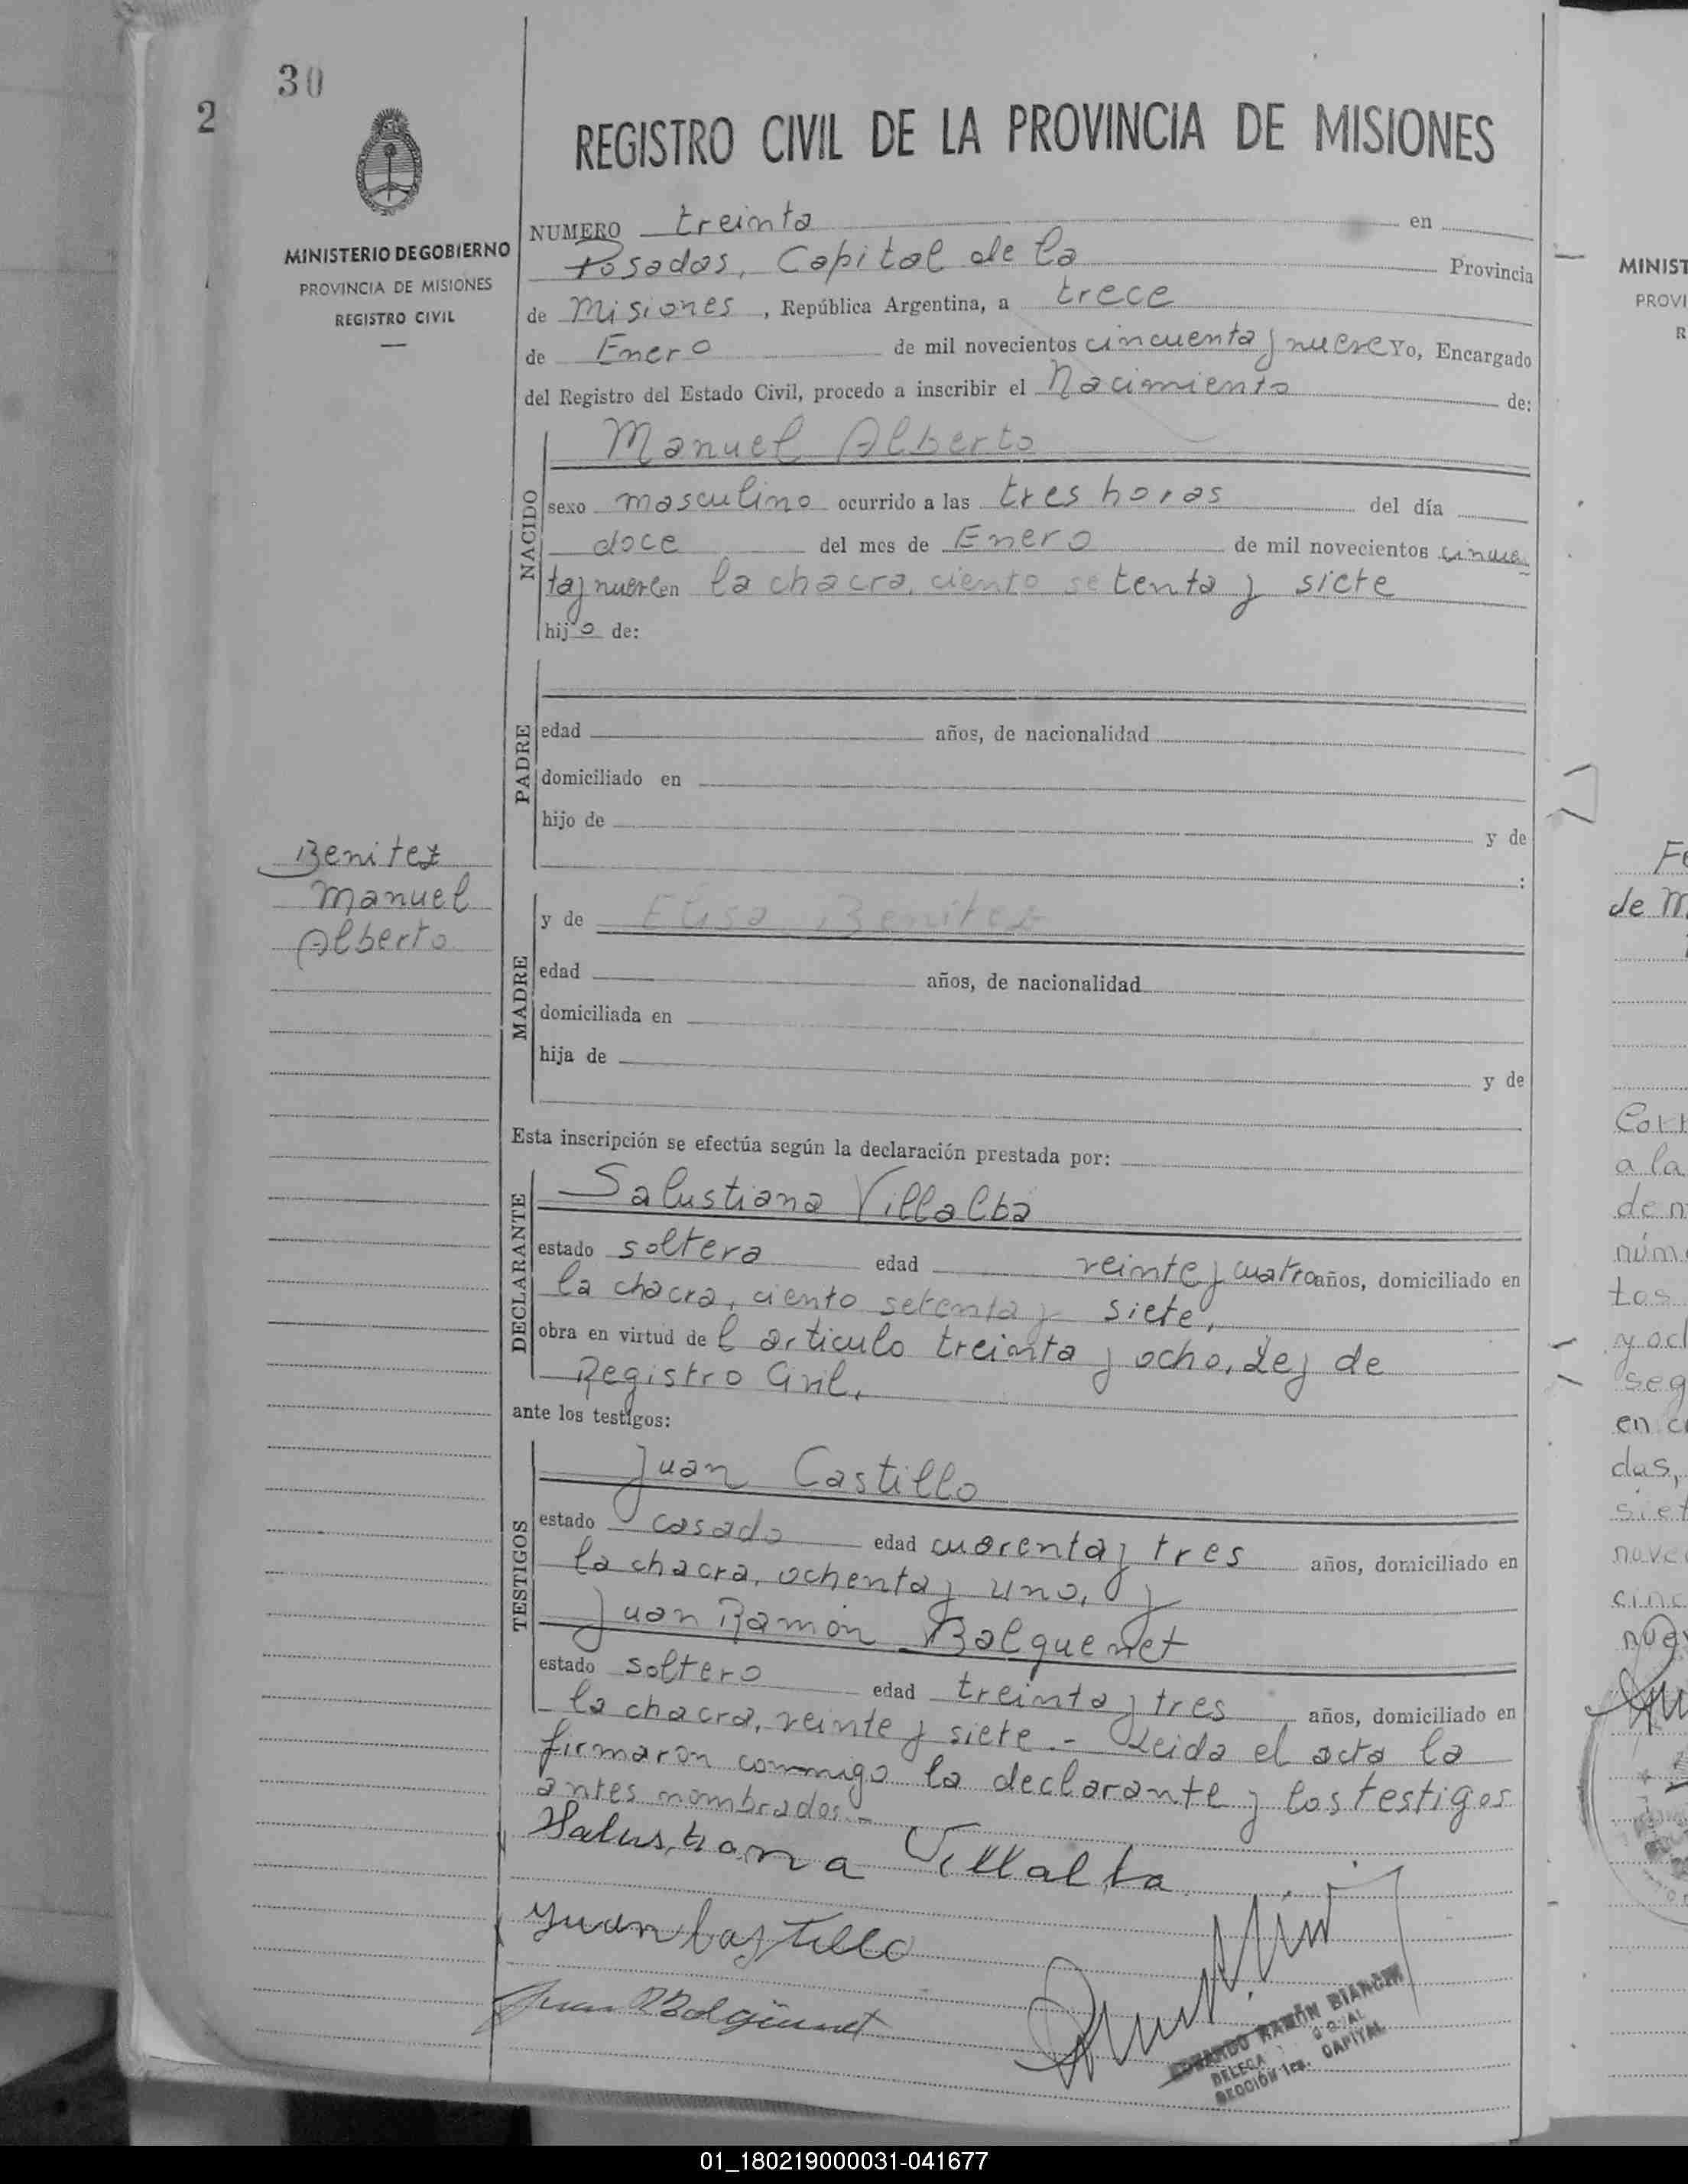 30
2
REGISTRO CIVIL DE LA PROVINCIA DE MISIONES
MINISTERIO DE GOBIERNO
PROVINCIA DE MISIONES
REGISTRO CIVIL
NUMERO treinta en
Posadas, Capital de la Provincia
de Misiones, República Argentina, a trece
de Enero de mil novecientos cincuenta y nueve Yo, Encargado
del Registro del Estado Civil, procedo a inscribir el Nacimiento de:
NACIDO
Manuel Alberto
sexo masculino ocurrido a las tres horas del día
doce del mes de Enero de mil novecientos cincuen
ta y nueve en la chacra, ciento setenta y siete
hijo de:
PADRE
edad años, de nacionalidad
domiciliado en
hijo de y de
:
Benitez
Manuel
Alberto
MADRE
y de Elisa Benitez
edad años, de nacionalidad
domiciliada en
hija de y de
Esta inscripción se efectúa según la declaración prestada por:
DECLARANTE
Salustiana Villalba
estado soltera edad veinte y cuatro años, domiciliado en
la chacra, ciento setenta y siete,
obra en virtud del articulo treinta y ocho, Ley de
Registro Civil,
ante los testigos:
TESTIGOS
Juan Castillo
estado casado edad cuarenta y tres años, domiciliado en
la chacra, ochenta y uno, y
Juan Ramon Balquenet
estado soltero edad treinta y tres años, domiciliado en
la chacra, veinte y siete.- Leida el acta la
firmaron conmigo la declarante y los testigos
antes nombrados.-
Salustiana Villalba
Juan Castillo
Juan R Bolgüenet
EDUARDO RAMÓN BIANCHI
SECCIÓN 1ra. CAPITAL
MINIST
PROVI
R
Fe
de M
Cort
a la
de n
núm
tos
y oc
seg
en c
das,
siet
nove
cinc
nue
01_180219000031-041677